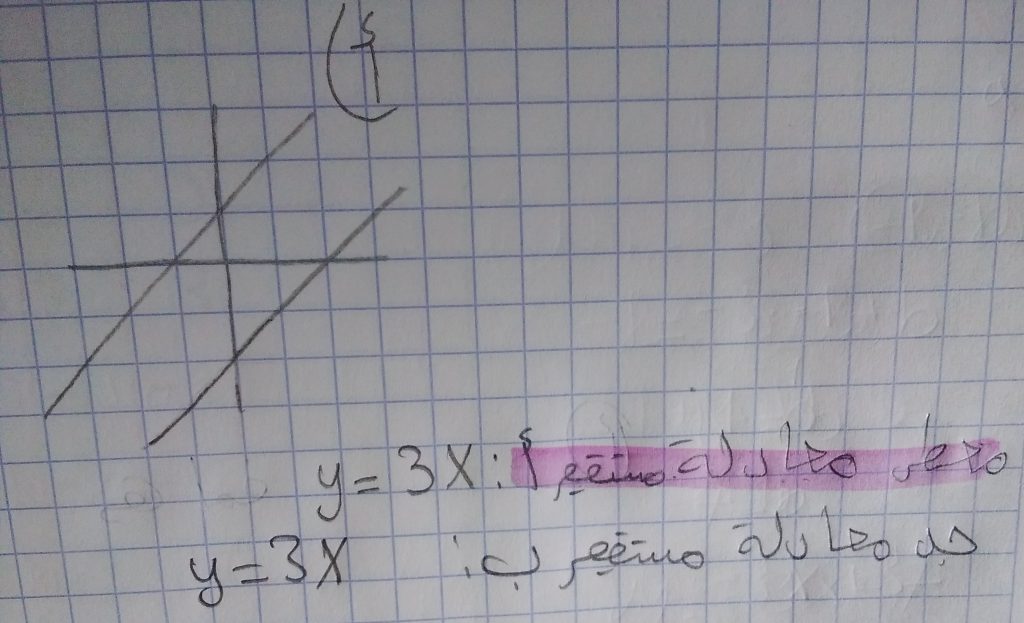 أ)
معطى معادلة مستقيم أ: y = 3X
جد معادلة مستقيم ب: y = 3X